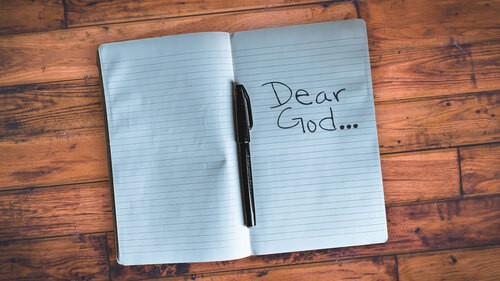 Dear
God...